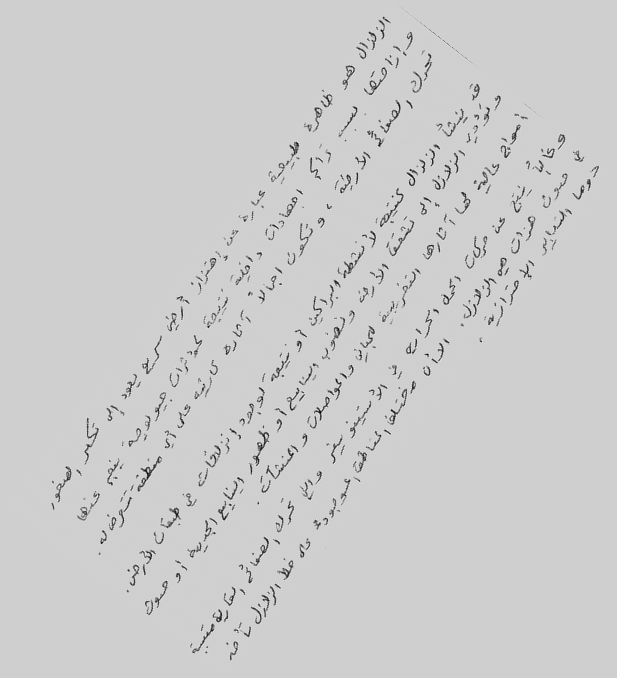 الزلزال هو ظاهرة طبيعية عبارة عن إهتزاز أرضي سريع يعود إلى تكسر الصخور
وإزاحتها بسبب تراكم اجهادات داخلية نتيجة لمؤثرات جيولوجية ينجم عنها
تحرك الصفائح الأرضية ، وتكون اجمالاً آثاره كارثية على أي منطقة تتعرض له .
قد ينشأ الزلزال كنتيجة لأنشطة البراكين أو نتيجة لوجود إنزلاقات في طبقات الأرض .
وتؤدي الزلازل إلى تشقق الأرض ونضوب الينابيع أو ظهور الينابيع الجديدة أو حدوث
أمواج عالية لها آثارها التخريبية للمباني والمواصلات والمنشآت .
وغالباً ينتج عن حركات الحمل الحراري في الأستينوسفير والتي تحرك الصفائح القارية متسببة
في حدوث هزات هي الزلازل . المختلف المناطق الموجودة على خط الزلازل تأخذ
دوما التدابير الإحترازية .